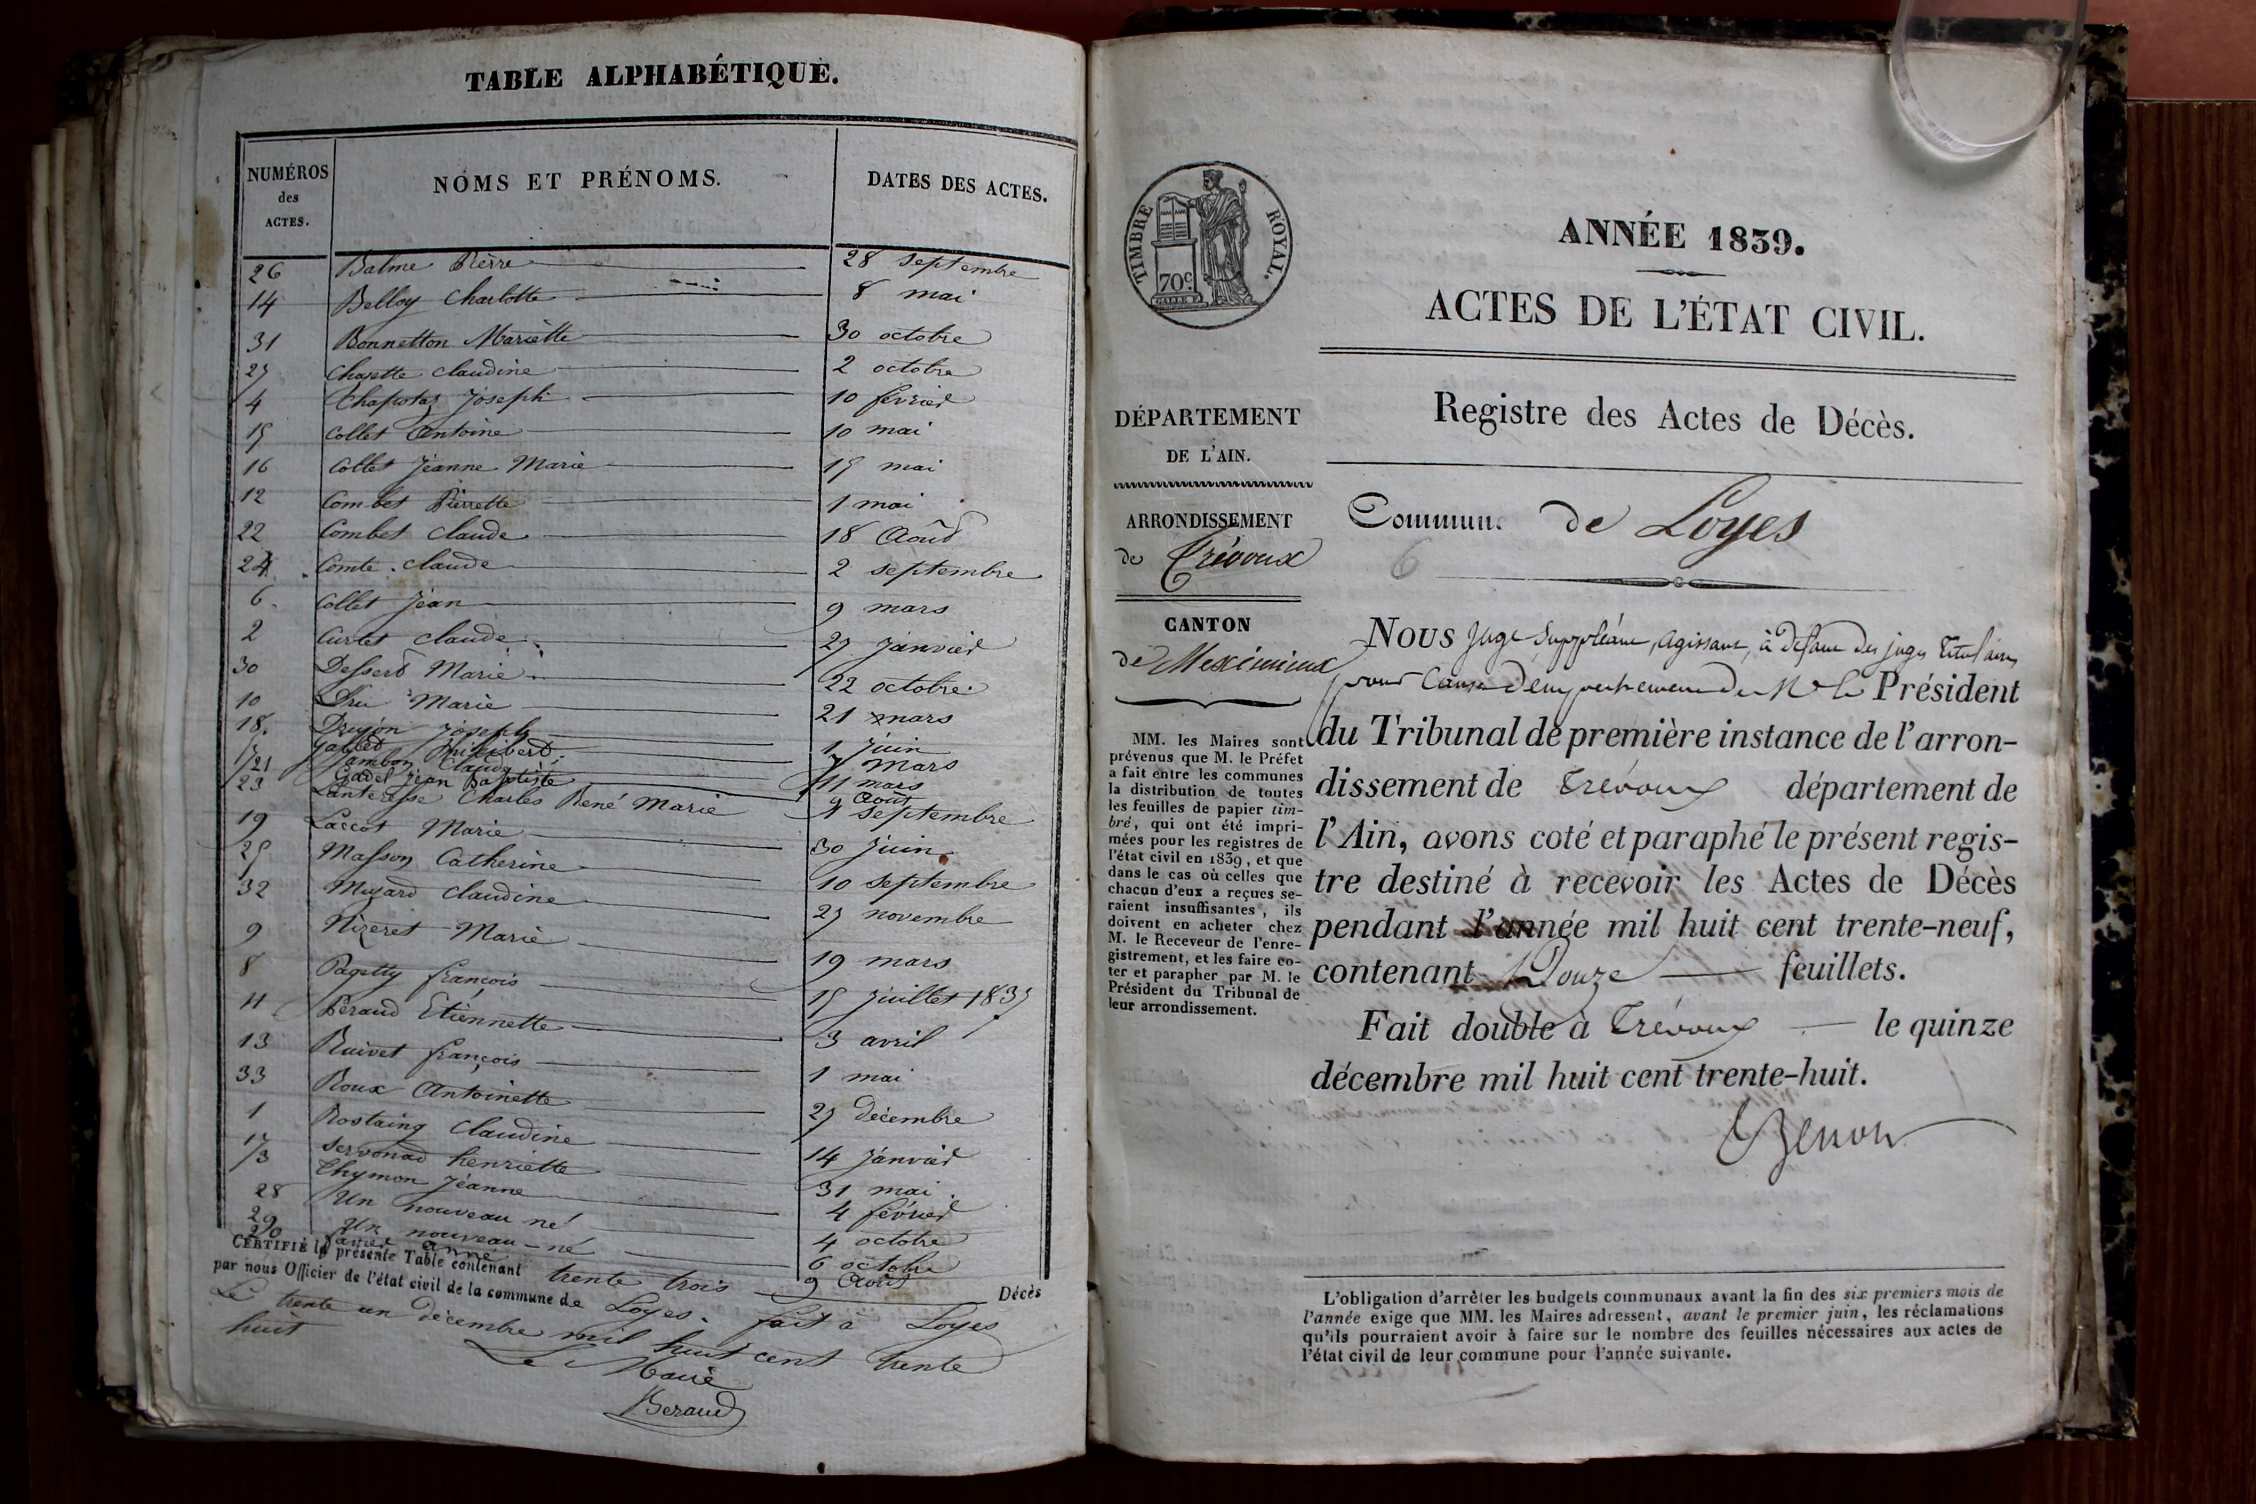 TABLE ALPHABÉTIQUE.
NUMÉROS des ACTES. NOMS ET PRÉNOMS. DATES DES ACTES.
26 Balme Pierre 28 septembre
14 Belloy Charlotte 8 mai
31 Bonnetton Mariette 30 octobre
27 Chasette Claudine 2 octobre
4 Chapotaz Joseph 10 février
15 Collet Antoine 10 mai
16 Collet Jéanne Marie 15 mai
12 Combet Pierrette 1 mai
22 Combet Claude 18 Août
24 Comte Claude 2 septembre
6 Collet Jéan 9 mars
2 Curtet Claude 27 janvier
30 Dessert Marie 22 octobre
10 Dru Marie 21 mars
18 Dugion Joseph 1 juin
Philibert 7 mars
Jambon Claude 11 mars
21 Gadel Jéan Baptiste 9 Août
23 Lanteresse Charles René Marie 1 septembre
19 Laccot Marie 30 juin
25 Masson Catherine 10 septembre
32 Muzard Claudine 27 novembre
9 Nizeret Marie 19 mars
8 Pagetty françois 15 juillet 1837
11 Péraud Etiennette 3 avril
13 Ruivet françois 1 mai
33 Roux Antoinette 27 décembre
1 Rostaing Claudine 14 janvier
17 Servonad henriette 31 mai
3 Thymon Jéanne 4 février
28 Un nouveau né 4 octobre
29 Un nouveau-né 6 octobre
20 anné 9 Août
CERTIFIÉ la présente Table contenant trente trois Décès
par nous Officier de l'état civil de la commune de Loyes. fait à Loyes
Le trente un décembre mil huit cent trente
huit
Le Maire
Beraud
TIMBRE ROYAL.
70c
ANNÉE 1839.
ACTES DE L'ÉTAT CIVIL.
Registre des Actes de Décès.
Commune de Loyes
6
DÉPARTEMENT
DE L'AIN.
ARRONDISSEMENT
de Trévoux
CANTON
de Meximieux
MM. les Maires sont
prévenus que M. le Préfet
a fait entre les communes
la distribution de toutes
les feuilles de papier tim-
bré, qui ont été impri-
mées pour les registres de
l'état civil en 1839, et que
dans le cas où celles que
chacun d'eux a reçues se-
raient insuffisantes, ils
doivent en acheter chez
M. le Receveur de l'enre-
gistrement, et les faire co-
ter et parapher par M. le
Président du Tribunal de
leur arrondissement.
NOUS Juge Suppléant, agissant, à défaut des juges titulaires
pour Cause d'empechement de Mr le Président
du Tribunal de première instance de l'arron-
dissement de Trévoux département de
l'Ain, avons coté et paraphé le présent regis-
tre destiné à recevoir les Actes de Décès
pendant l'année mil huit cent trente-neuf,
contenant Douze feuillets.
Fait double à Trévoux le quinze
décembre mil huit cent trente-huit.
L'obligation d'arrêter les budgets communaux avant la fin des six premiers mois de
l'année exige que MM. les Maires adressent, avant le premier juin, les réclamations
qu'ils pourraient avoir à faire sur le nombre des feuilles nécessaires aux actes de
l'état civil de leur commune pour l'année suivante.